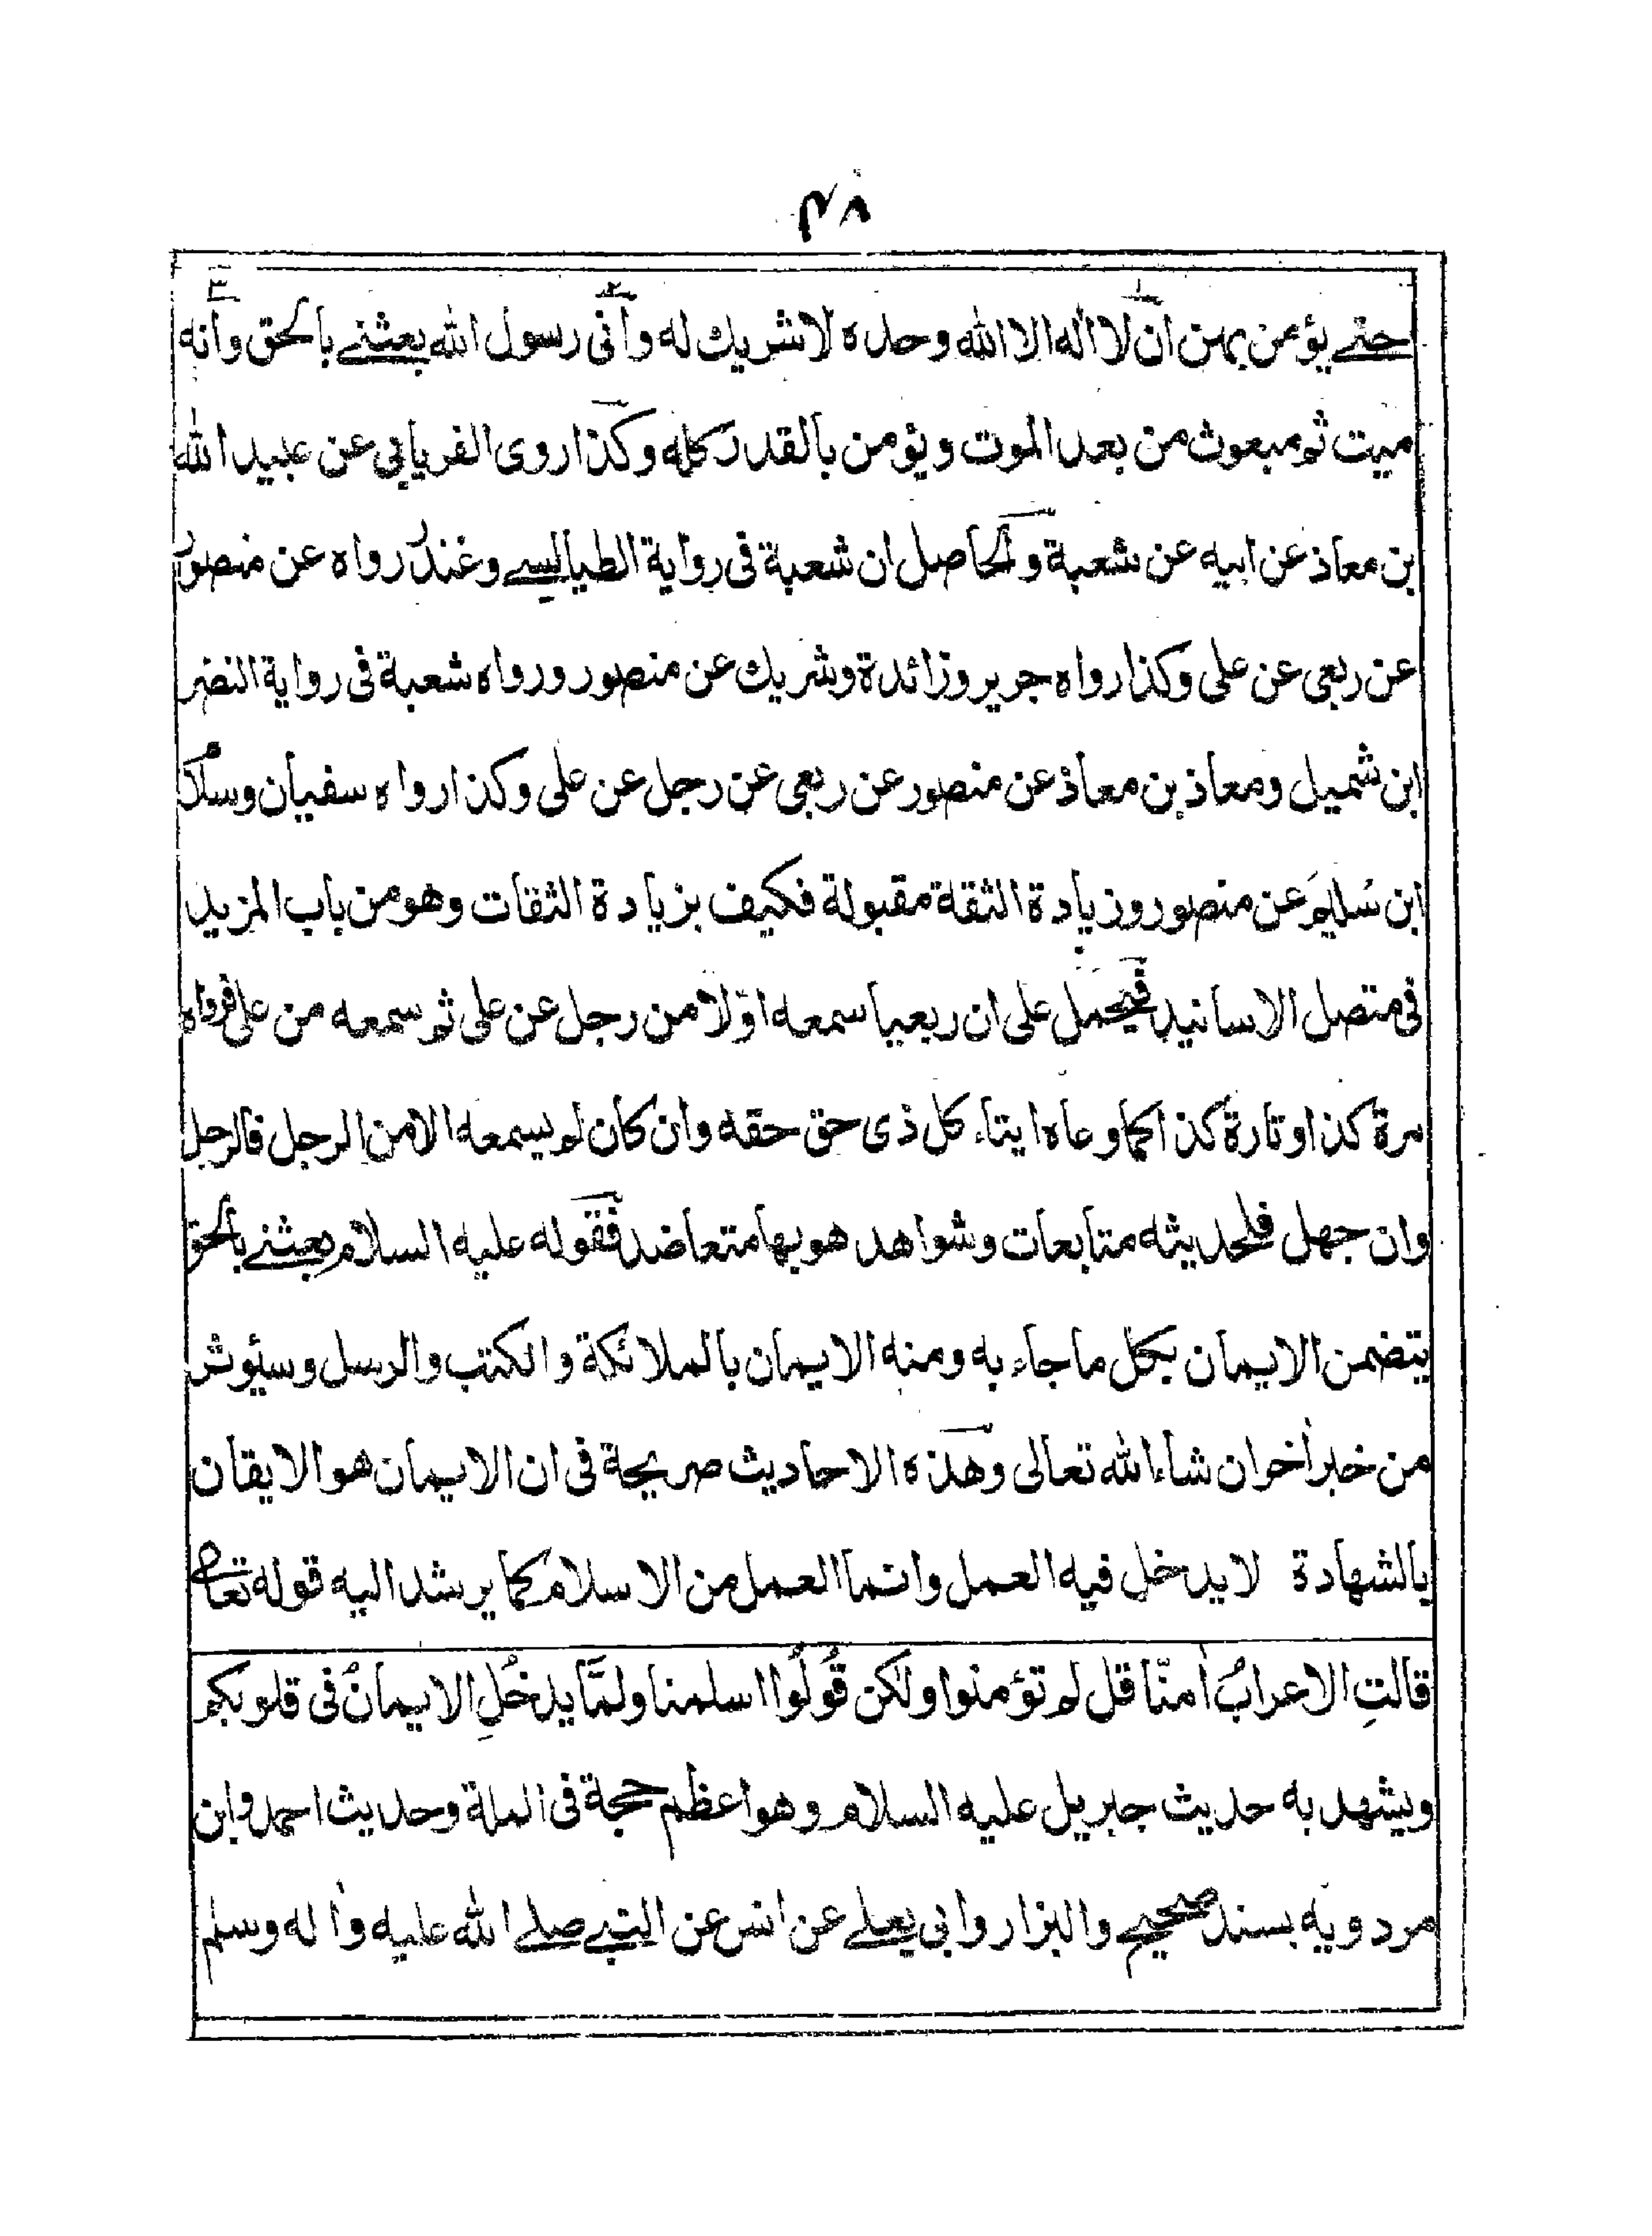 ۴۸
حتى يؤمن بهن ان لا اله الا الله وحده لا شريك له وأني رسول الله بعثنى بالحق وانه
ميت ثم مبعوث من بعد الموت ويؤمن بالقدر كله وكذا روى الفريابي عن عبيد الله
بن معاذ عن ابيه عن شعبة والحاصل ان شعبة فى رواية الطيالسى وغندر رواه عن منصور
عن ربعي عن على وكذا رواه جرير وزائدة وشريك عن منصور ورواه شعبة فى رواية النضر
ابن شميل ومعاذ بن معاذ عن منصور عن ربعي عن رجل عن على وكذا رواه سفيان وسلام
ابن سُليم عن منصور وزيادة الثقة مقبولة فكيف بزيادة الثقات وهو من باب المزيد
فى متصل الاسانيد فيحمل على ان ربعيا سمعه اوّلا من رجل عن على ثم سمعه من على فرواه
مرة كذا وتارة كذا كما وعاه ايتاء كل ذى حق حقه وان كان لم يسمعه الا من الرجل فالرجل
وان جهل فلحديثه متابعات وشواهد هو بها متعاضد فقوله عليه السلام بعثنى بالحق
يتضمن الايمان بكل ما جاء به ومنه الايمان بالملائكة والكتب والرسل وسيؤثر
من خبر أخر ان شاء الله تعالى وهذه الاحاديث صريحة فى ان الايمان هو الايقان
بالشهادة لا يدخل فيه العمل وانما العمل من الاسلام كما يرشد اليه قوله تعالى
قالتِ الاعرابُ اٰمنّا قل لم تؤمنوا ولكن قُولُوا اسلمنا ولمَّا يدخُلِ الايمانُ فى قلوبكم
ويشهد به حديث جبريل عليه السلام وهو اعظم حجة فى الملة وحديث احمد وابن
مردويه بسند صحيح والبزار وابى يعلى عن انس عن النبى صلى الله عليه واٰله وسلم